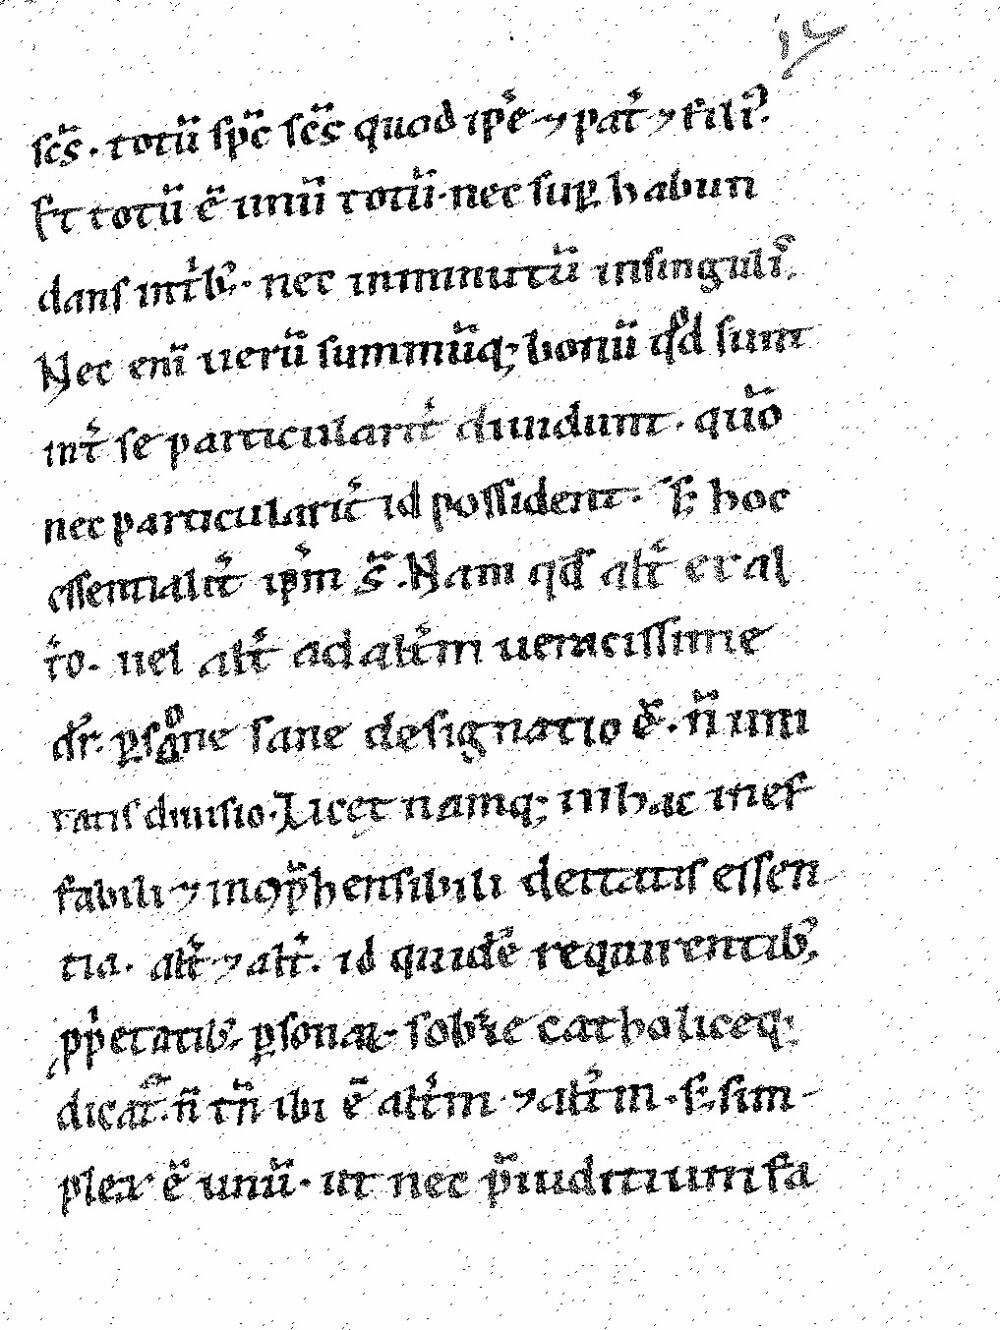 sc̄s. totū sp̄c sc̄s quod ip̄e ⁊ pat̄ ⁊ fili⁹.
Et totū ē unū totū. nec suꝑ habun
dans int̄ib⁹. nec inminutū insinguli⁹.
Nec eni ̄ uerū summūq; bonū qd̄ sunt
int̄ se particularit̄ diuidunt. quō
nec particularit̄ id possident. S; hoc
essentialit̄ ip̄m s̄. Nam qd̄ alt̄ et al
t̄o. uel alt̄ ad alt̄m ueracissime
dr̄. ꝑsone sane designatio ē. n̄ uni
tatis diuisio. Licet namq; inhac inef
fabili ⁊ inꝯp̄hensibili deitatis essen
tia. alt̄ ⁊ alt̄. id quidē requirentib⁹
ꝓp̄etatib⁹ ꝑsonaꝝ sobrie catholiceq;
dicat̄. n̄ tn̄ ibi ē alt̄m ⁊ alt̄m. s; sim-
plex ē unū. ut nec p̄iuditium fa